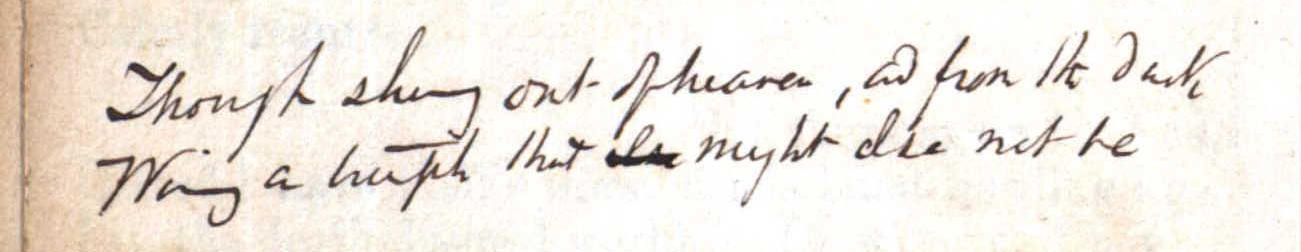 Though shining out of heaven, and from the dark
Winning a triumph that might else not be